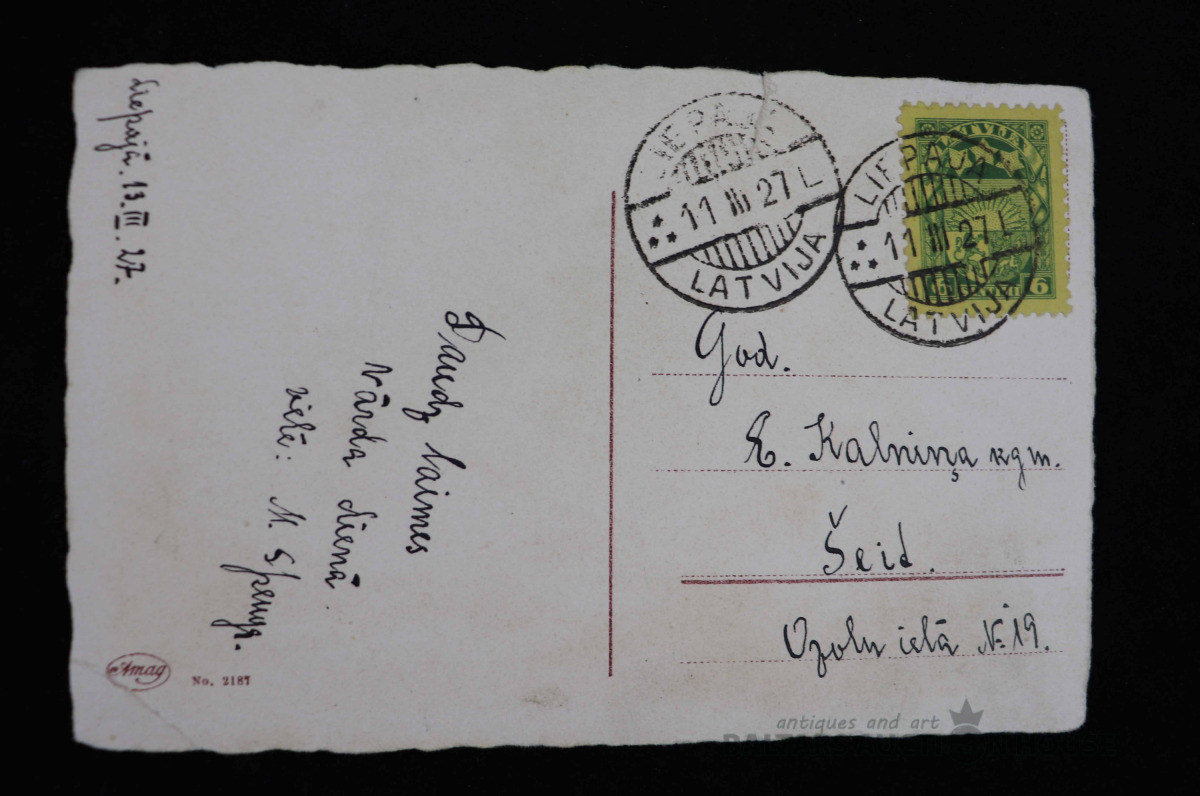 Liepājā. 13.III.27.
Daudz laimes
Vārda dienā.
vēlē: M. Spenga.
Amag
No. 2187
LIEPAJA
11 III 27 L
LATVIJA
LIEPAJA
11 III 27 L
LATVIJA
LATVIJA
6 6
God.
E. Kalniņa kgm.
Šeid.
Ozolu ielā № 19.
antiques and art